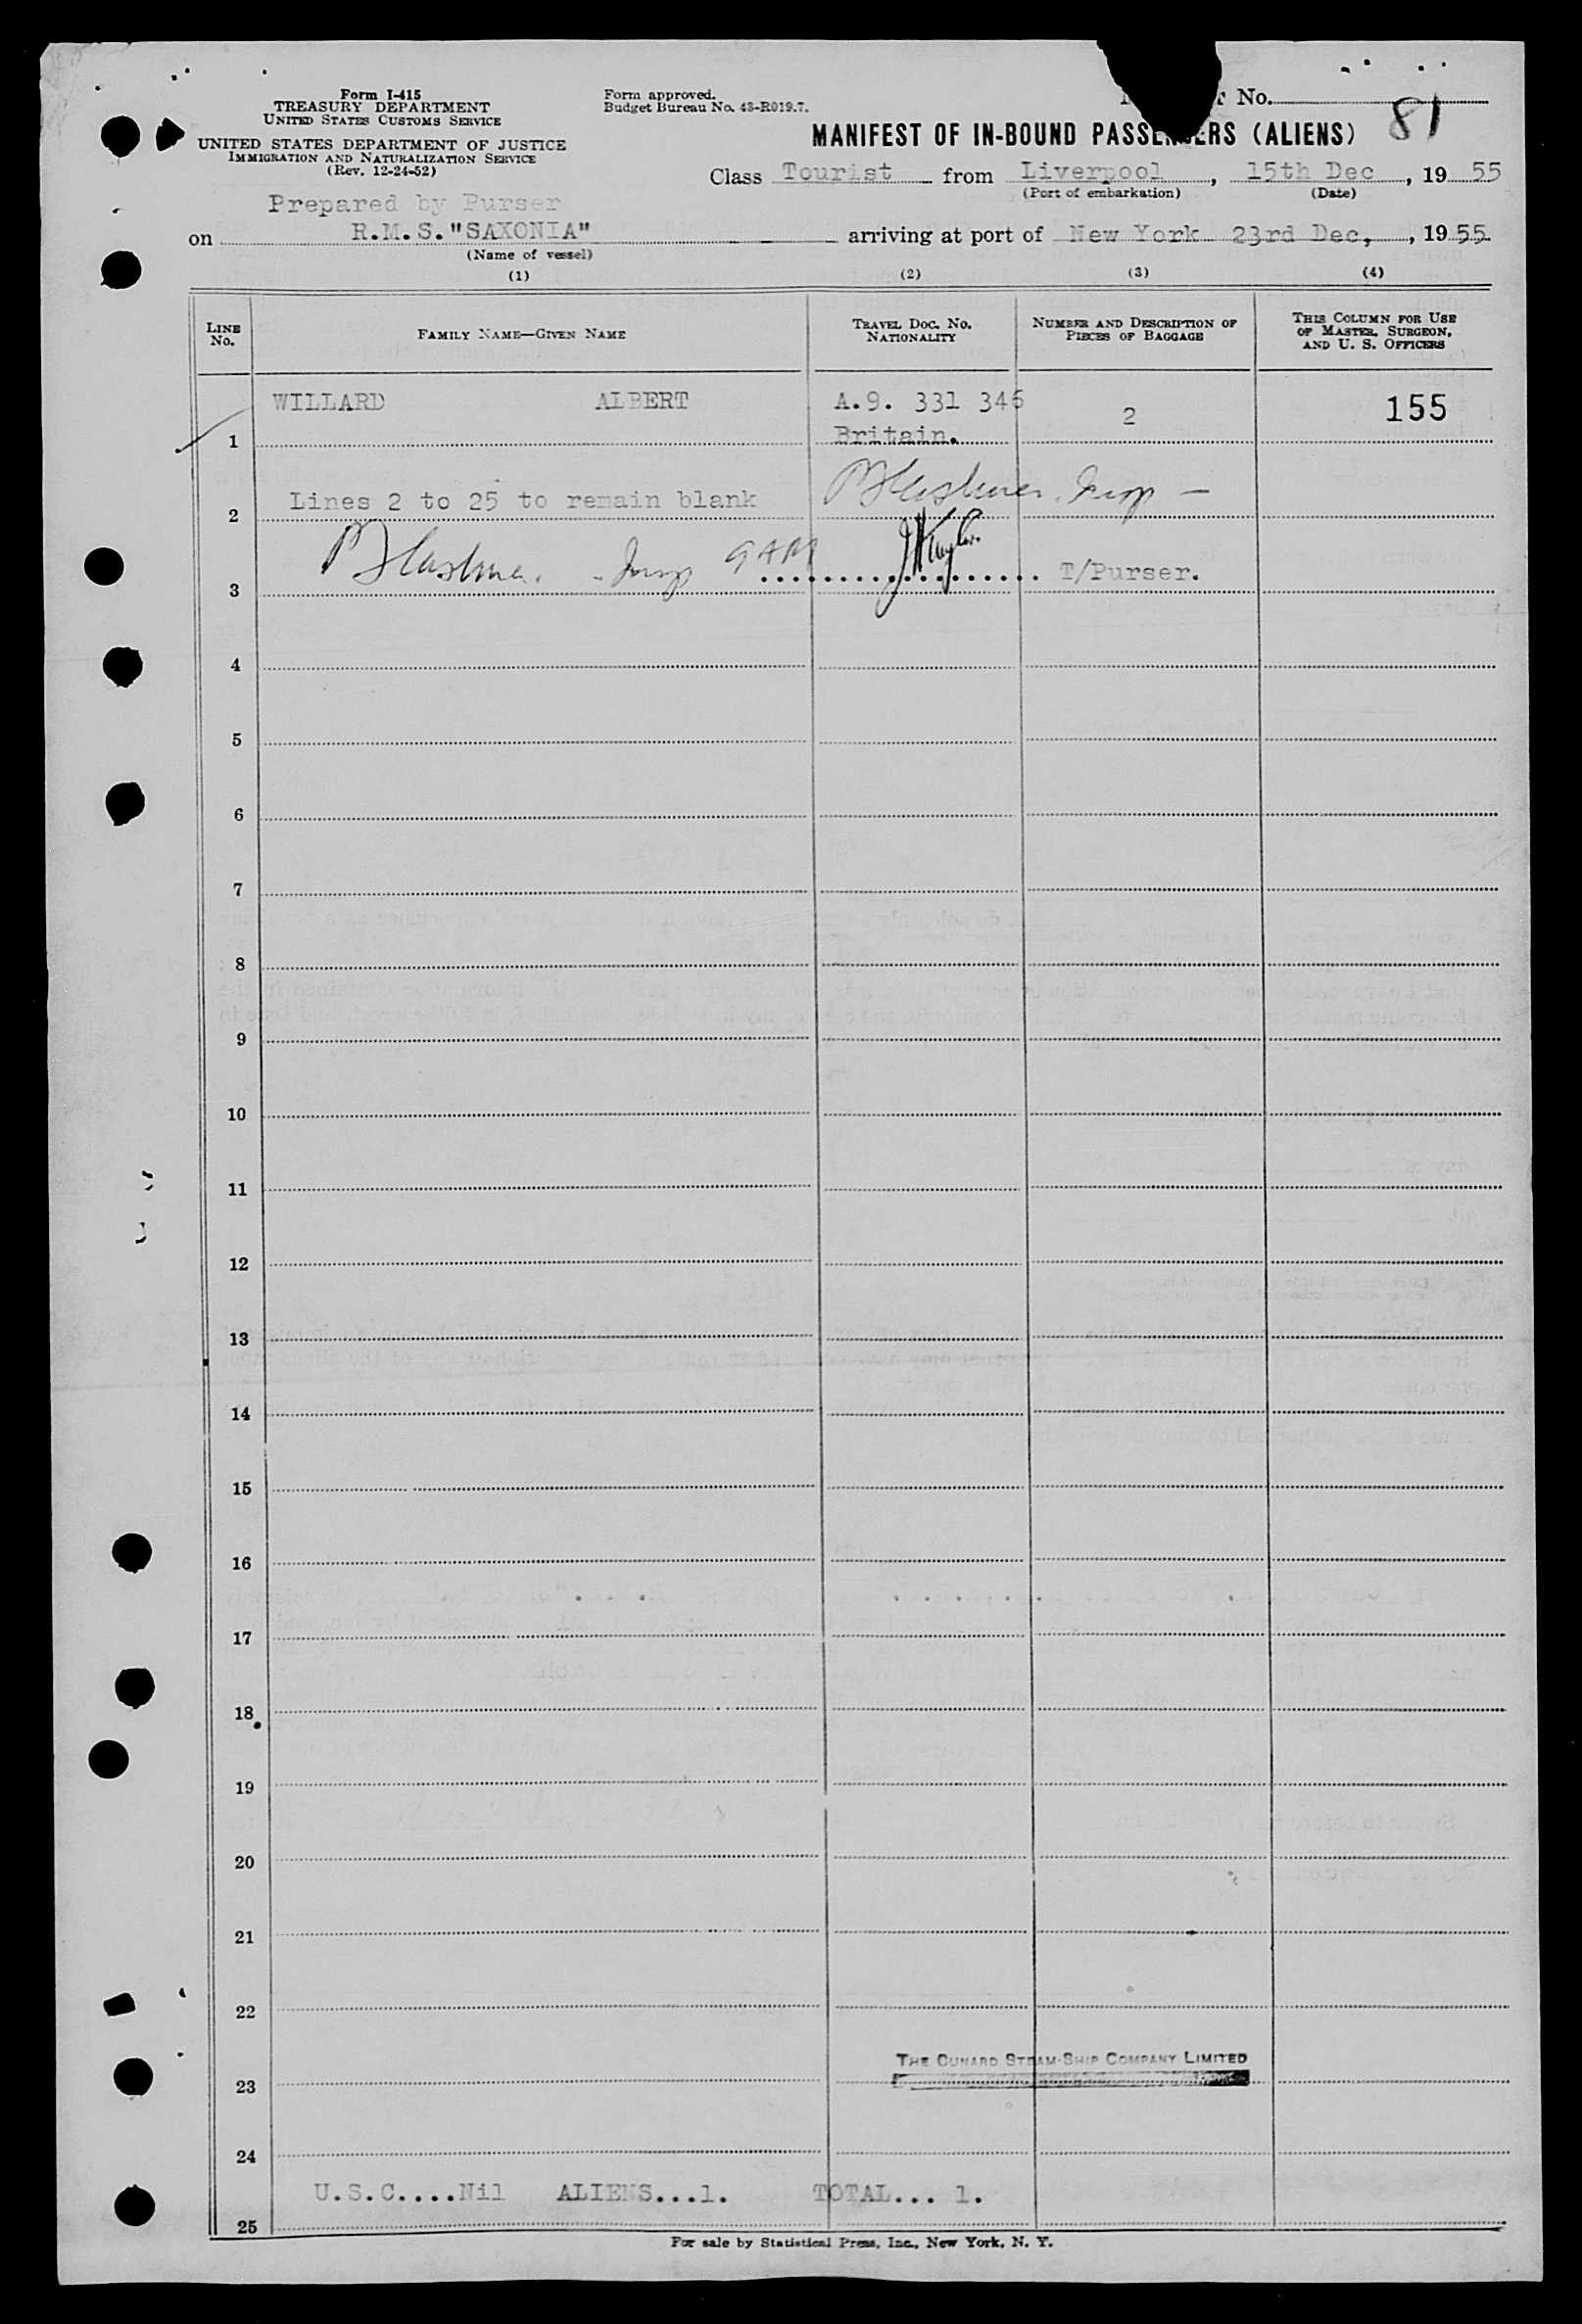 Form I-415
TREASURY DEPARTMENT
UNITED STATES CUSTOMS SERVICE
UNITED STATES DEPARTMENT OF JUSTICE
IMMIGRATION AND NATURALIZATION SERVICE
(Rev. 12-24-52)
Form approved.
Budget Bureau No. 43-R019.7.
No.
81
MANIFEST OF IN-BOUND PASSENGERS (ALIENS)
Class Tourist from Liverpool, 15th Dec, 19 55
(Port of embarkation) (Date)
Prepared by Purser
on R.M.S."SAXONIA" arriving at port of New York 23rd Dec, , 19 55
(Name of vessel)
(1) (2) (3) (4)
LINE No.
FAMILY NAME—GIVEN NAME
TRAVEL DOC. NO. NATIONALITY
NUMBER AND DESCRIPTION OF PIECES OF BAGGAGE
THIS COLUMN FOR USE OF MASTER, SURGEON, AND U. S. OFFICERS
WILLARD ALBERT A.9. 331 346 2 155
1 Britain.
2 Lines 2 to 25 to remain blank
3 T/Purser.
4
5
6
7
8
9
10
11
12
13
14
15
16
17
18
19
20
21
22
THE CUNARD STEAM-SHIP COMPANY LIMITED
23
24
U.S.C....Nil ALIENS...1. TOTAL... 1.
25
For sale by Statistical Press, Inc., New York, N. Y.